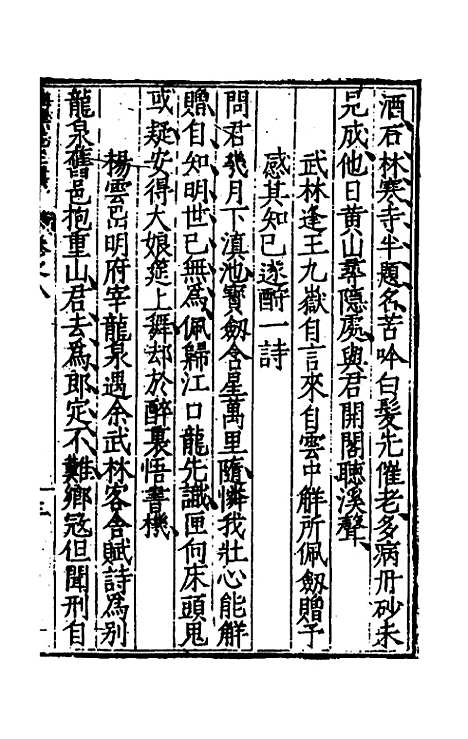 酒石林寒寺半題名苦吟白髮先催老多病丹砂未
見成他日黄山尋隠處與君開閣聽溪聲
武林逢王九嶽自言來自雲中解所佩劔贈予
感其知己遂酧一詩
問君幾月下滇池寳劔含星萬里隨憐我壯心能解
贈自知明世已無為佩歸江口龍先識匣向床頭鬼
或疑安得大娘筵上舞却於醉裏悟書機
楊雲嵒明府宰龍泉遇余武林客舍賦詩為别
龍泉舊邑抱重山君去為郎定不難鄉冦但聞刑自